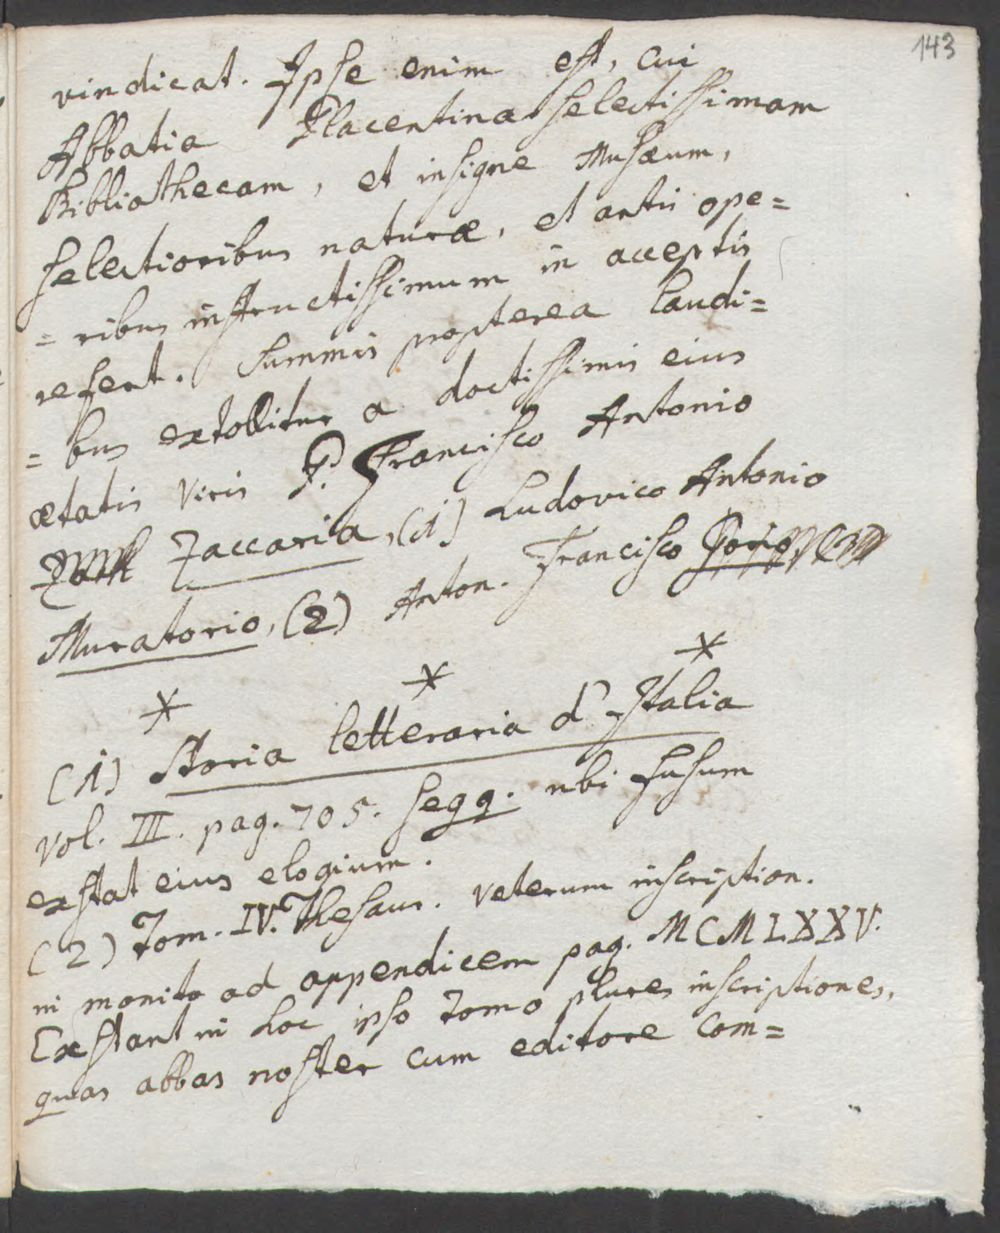 143
vindicat. Ipse enim est, cui
Abbatia Placentina selectissimam
Bibliothecam, et insigne Musæum,
selectioribus naturæ, et artis ope=
= ribus instructissimum in acceptis
refert. Summis propterea laudi=
= bus extollitur a doctissimis eius
ætatis viris P. Francisco Antonio
Zaccaria, (1) Ludovico Antonio
Muratorio, (2) Anton. Francisco Gorio
* * *
(1) Storia letteraria d'Italia
vol. III. pag. 705. seqq. ubi fusum
exstat eius elogium.
(2) Tom. IV. Thesaur. veterum inscription.
in monito ad appendicem pag. MCMLXXV.
Exstant in hoc ipso tomo plures inscriptiones,
quas abbas noster cum editore com=